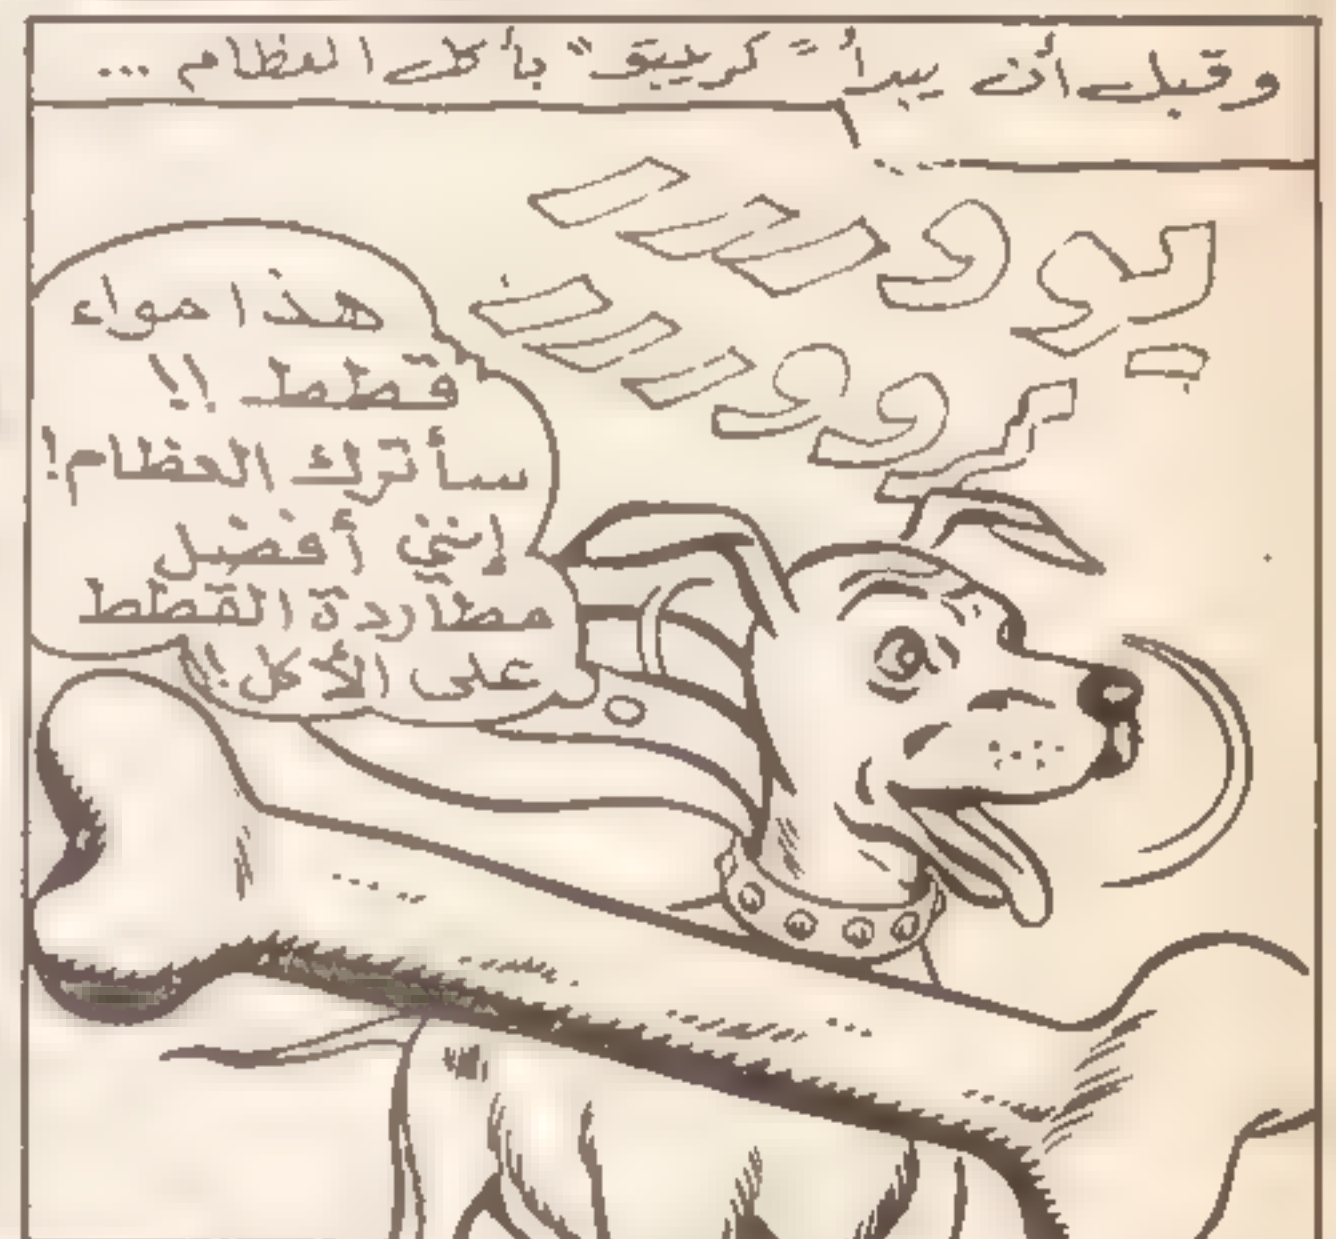 وقبل أن يبدأ "كريبتو" بأكل العظام ...
هذا مواء
قطط !!
سأترك العظام!
إنني أفضل
مطاردة القطط
على الأكل!!